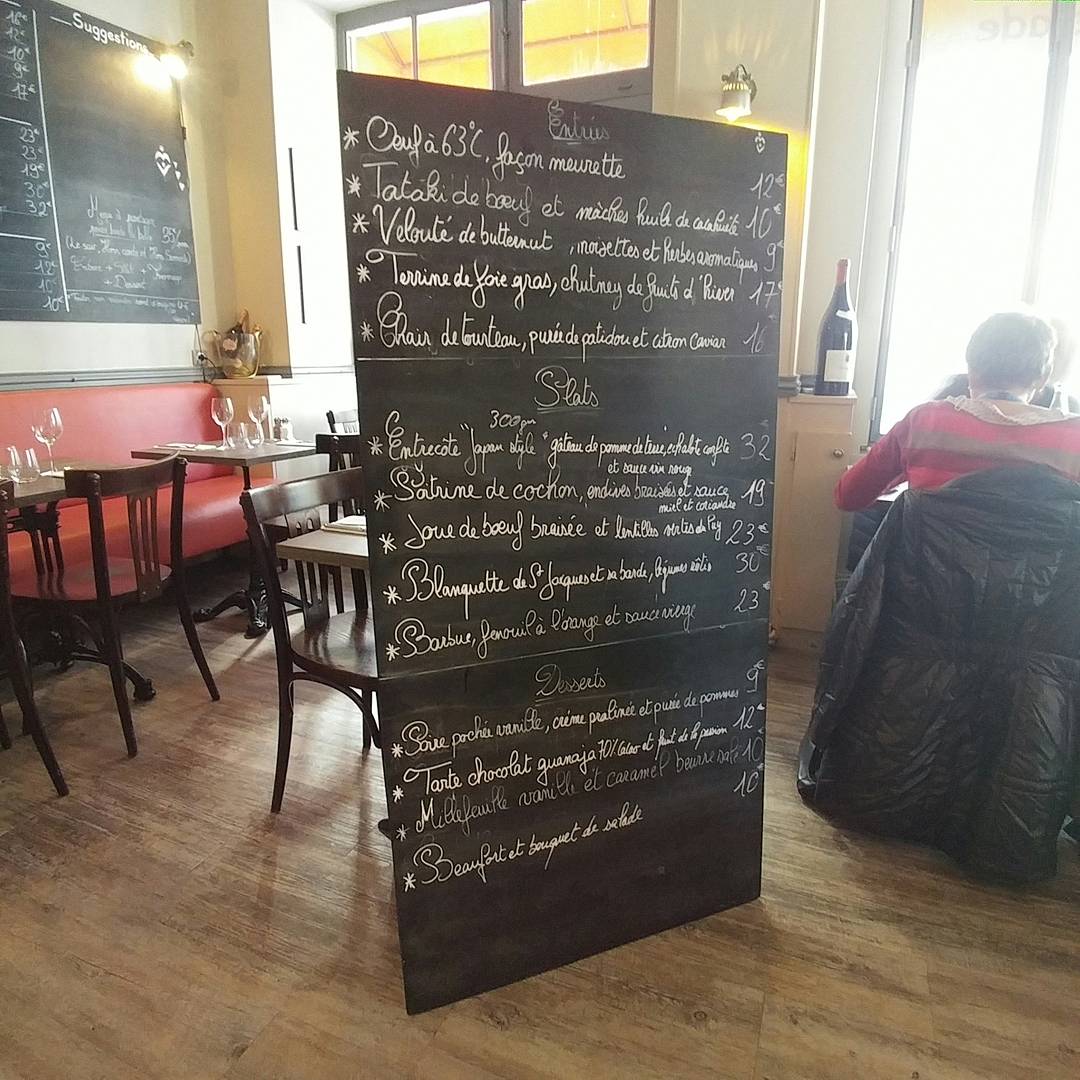 Suggestions
16€
12€
10€
9€
17€
23€
23€
19€
30€
32€
9€
12€
10€
10€
35€
Entrées
* Œuf à 63°C, façon meurette 12€
* Tataki de bœuf et mâches huile de cacahuète 10€
* Velouté de butternut, noisettes et herbes aromatiques 9€
* Terrine de foie gras, chutney de fruits d'hiver 17€
* Chair de tourteau, purée de patidou et citron caviar 16
Plats
300gm
* Entrecôte "Japan style" gâteau de pomme de terre, echalote confite 32€
et sauce vin rouge
* Poitrine de cochon, endives braisées et sauce 19
miel et coriandre
* Joue de bœuf braisée et lentilles vertes du Puy 23€
* Blanquette de St Jacques et sa barde, légumes rôtis 30€
* Barbue, fenouil à l'orange et sauce vierge 23€
Desserts
* Poire pochée vanille, crème pralinée et purée de pommes 9€
* Tarte chocolat guanaja 70% cacao et fruit de la passion 12€
* Millefeuille vanille et caramel beurre salé 10€
* Beaufort et bouquet de salade 10€